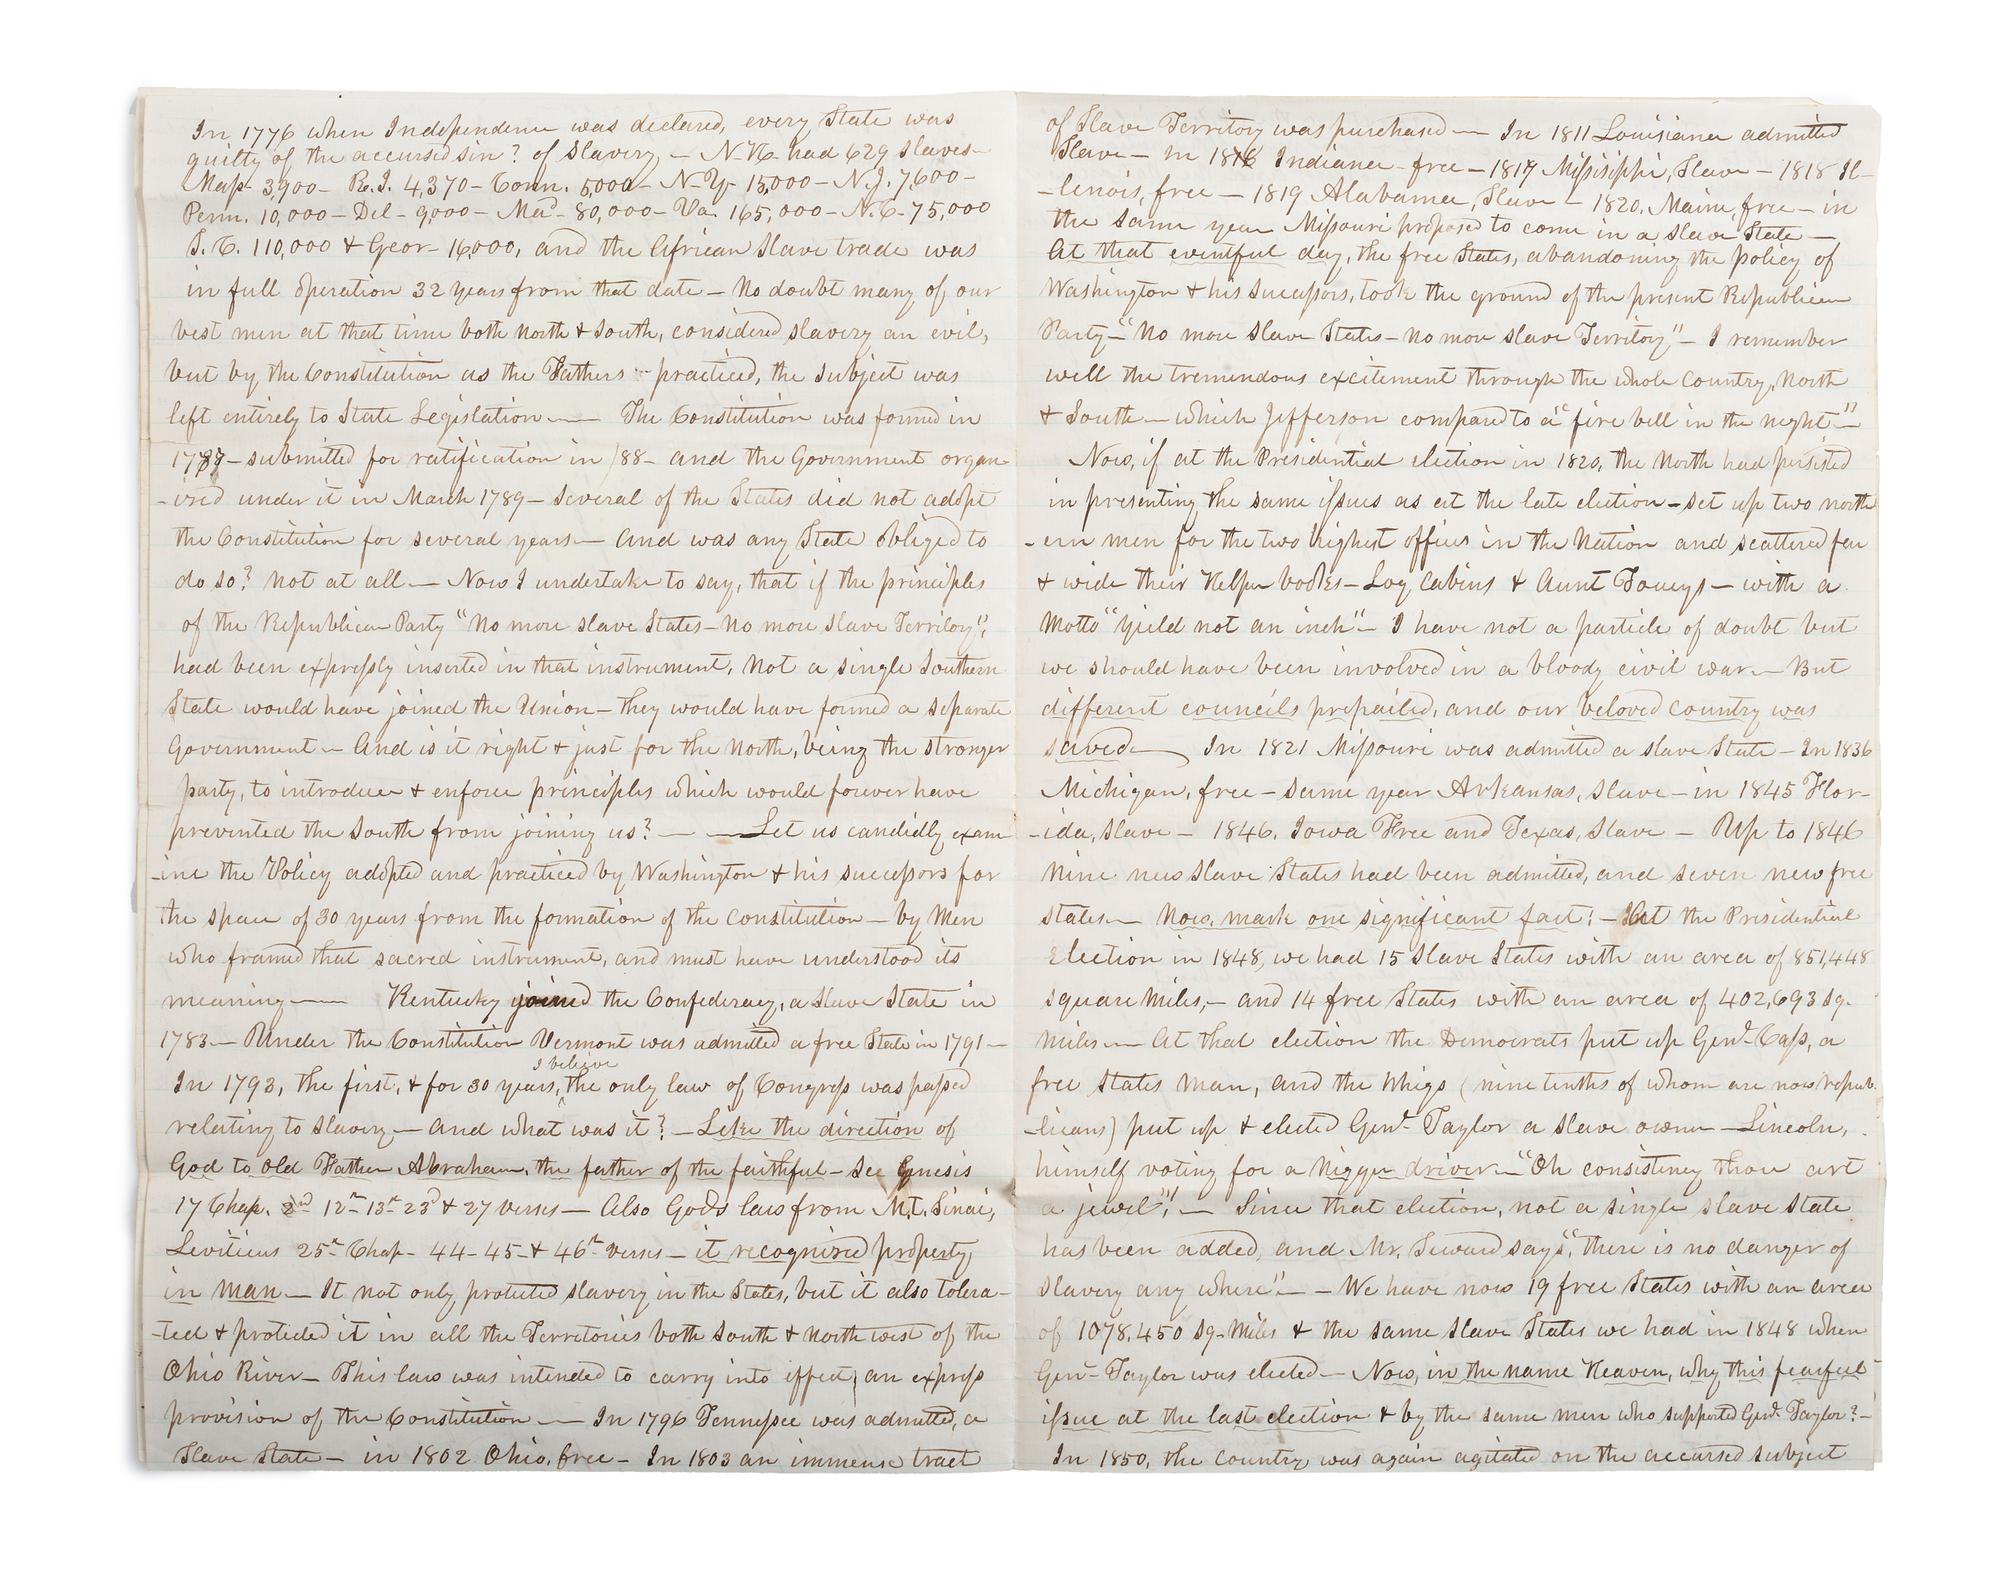 In 1776 when Independence was declared, every State was
guilty of the accursed sin? of Slavery – N-H- had 629 slaves–
Mass- 3,900- R.I. 4,370- Conn. 5,000- N-Y- 15,000- N.J. 7,600-
Penn. 10,000- Del- 9,000- Mad- 80,000- Va. 165,000- N.C- 75,000
S.C. 110,000 & Geor- 16,000, and the African Slave trade was
in full operation 32 years from that date – No doubt many of our
best men at that time both North & South, considered slavery an evil,
but by the Constitution as the Fathers practiced, the subject was
left entirely to State Legislation — The Constitution was formed in
1787 – submitted for ratification in /88- and the Government organ-
-ized under it in March 1789 – Several of the States did not adopt
the Constitution for several years — And was any State obliged to
do so? not at all — Now I undertake to say, that if the principles
of the Republican Party "No more slave States – No more Slave Territory",
had been expressly inserted in that instrument, Not a single Southern
State would have joined the Union – they would have formed a separate
Government – And is it right & just for the North, being the stronger
party, to introduce & enforce principles which would forever have
prevented the South from joining us? — — Let us candidly exam-
-ine the Policy adopted and practiced by Washington & his successors for
the space of 30 years from the formation of the Constitution – by Men
who framed that sacred instrument, and must have understood its
meaning — Kentucky joined the Confederacy, a Slave State in
1783 — Under the Constitution Vermont was admitted a free State in 1791 –
In 1793, the first, & for 30 years, I believe the only law of Congress was passed
relating to Slavery — And what was it? – Like the direction of
God to Old Father Abraham, the father of the faithful – See Genesis
17 Chap. 12th 13th 23d & 27 verses — Also God's laws from Mt. Sinai,
Leviticus 25th Chap- 44-45 & 46th verses – it recognized property
in man — It not only protected slavery in the States, but it also tolera-
-ted & protected it in all the Territories both South & North west of the
Ohio River — This law was intended to carry into effect, an express
provision of the Constitution — In 1796 Tennessee was admitted, a
Slave State – in 1802 Ohio, free – In 1803 an immense tract
of Slave Territory was purchased — In 1811 Louisiana admitted
Slave – in 1816 Indiana – free – 1817 Mississippi, Slave – 1818 Il-
-lenois, free – 1819 Alabama, Slave – 1820, Maine, free – in
the same year Missouri proposed to come in a slave State –
At that eventful day, the free States, abandoning the policy of
Washington & his successors, took the ground of the present Republican
Party – "No more Slave States – No more slave Territory" – I remember
well the tremendous excitement through the whole Country, North
& South – which Jefferson compared to a "fire bell in the night" –
Now, if at the Presidential election in 1820, the North had persisted
in presenting the same issues as at the late election – set up two north
-ern men for the two highest offices in the Nation and scattered far
& wide their Helper books – Log Cabins & Aunt – with a
Motto "yield not an inch" – I have not a particle of doubt but
we should have been involved in a bloody civil war — But
different councils prepailed, and our beloved Country was
saved — In 1821 Missouri was admitted a slave State – In 1836
Michigan, free – same year Arkansas, Slave – in 1845 Flor-
-ida, Slave – 1846, Iowa Free and Texas, Slave – Up to 1846
Nine new Slave States had been admitted, and seven new free
States — Now, mark one significant fact! – At the Presidential
Election in 1848, we had 15 Slave States with an area of 851,448
square Miles, – and 14 free States with an area of 402,693 sq.
Miles — At that election the Democrats put up Genl. Cass, a
free States Man, and the Whigs (nine tenths of whom are now Repub-
-licans) put up & elected Genl. Taylor a slave owner – Lincoln,
himself voting for a Nigger driver – "Oh consistency thou art
a jewel"! — Since that election, not a single slave State
has been added, and Mr. Seward says, "there is no danger of
Slavery any where" — – We have now 19 free States with an area
of 1078,450 Sq-Miles & the same slave States we had in 1848 when
Genl- Taylor was elected – Now, in the name Heaven, why this fearful
issue at the last election & by the same men who supported Genl. Taylor? –
In 1850, the country was again agitated on the accursed subject